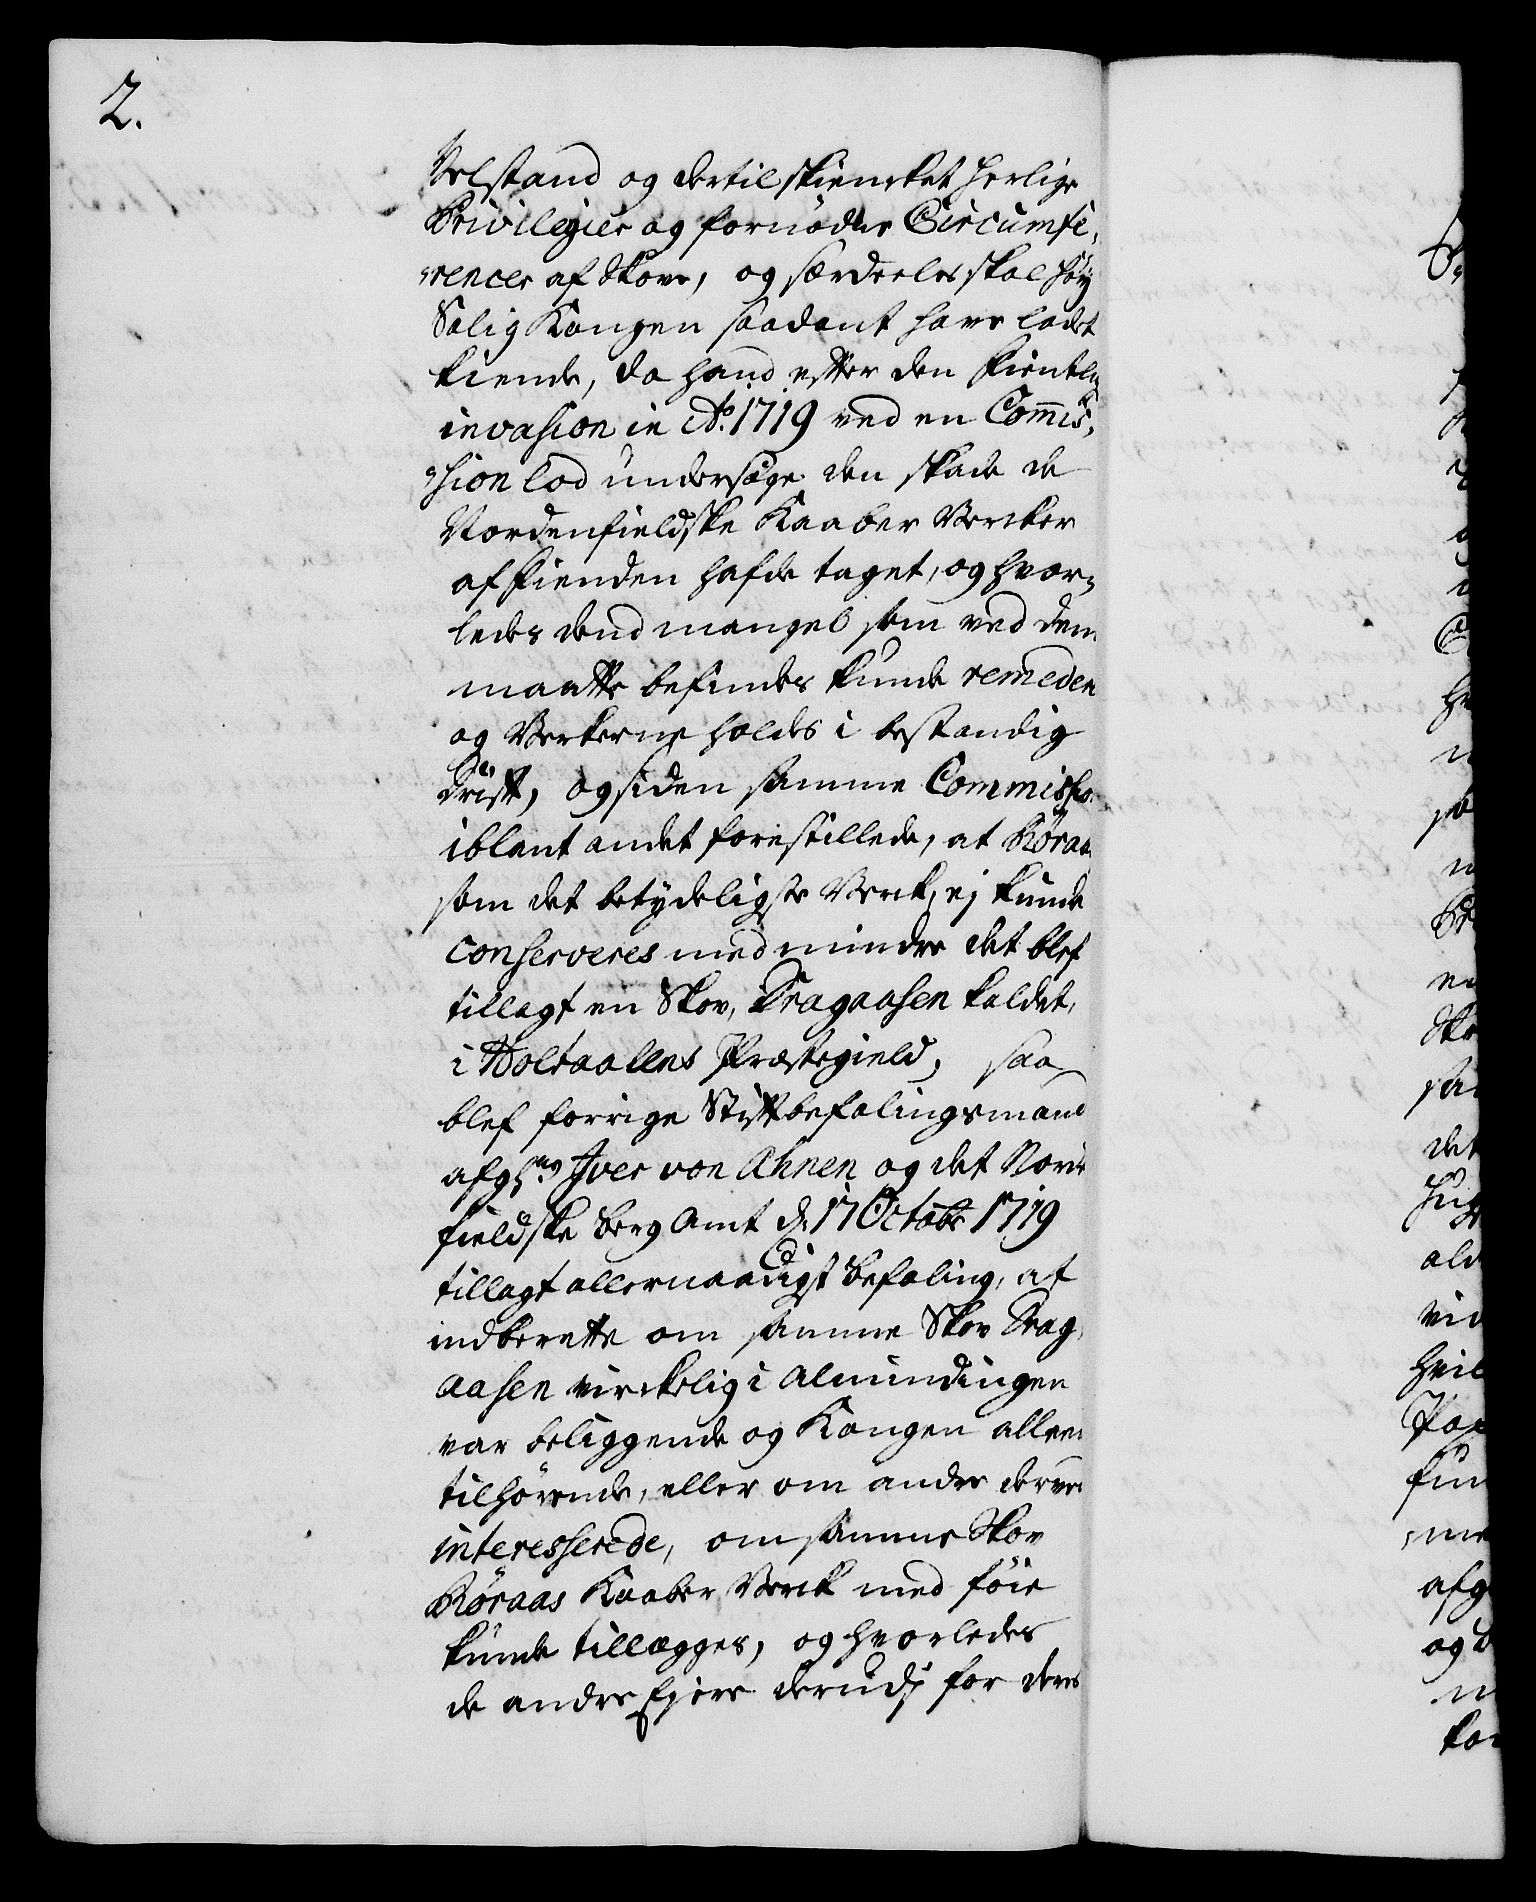 2.
Velstand og dertil skiencket herlige
Privilegier og fornødne Circumfe¸
"rencer af Skove, og særdeeles skal høy
Salig Kongen saadant have ladet
kiende, da hand efter den fientlig
invasion in Ao. 1719 ved en Commis¸
"sion lod undersøge den skade de
Nordenfieldske Kaaber Vercker
af fienden hafde taget, og hvor¸
ledes dend mangel som ved dem
maatte befindes kunde remederes
og Verkerne holdes i bestandig
Drift, og siden samme Commission
iblant andet forestillede, at Røraas
som det betydeligste Verck, ej kunde
conserveres med mindre det blef
tillagt en Skov, Dragaasen kaldet,
i Holtaalens Præstegield, saa
blef forrige Stiftbefalingsmand
afg: Iver von Ahnen og det Norden
fieldske Berg Amt d. 17 Octobr 1719
tillagt allernaadigst Befaling, at
indberette om samme Skov Drag¸
aasen virckelig i Almindingen
var beliggende og Kongen alleene
tilhørende, eller om andre derved
interesserede, om samme Skov
Røraas Kaaber Verck med føie
kunde tillægges, og hvorledes
de andre Ejere derudj for deres